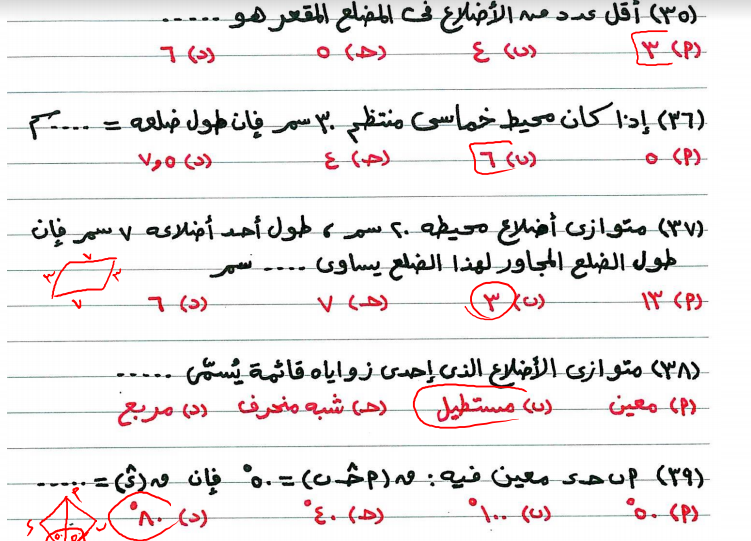 (٣٥) أقل عدد من الأضلاع فى المضلع المقعر هو .....
(P) ٣ (ب) ٤ (حـ) ٥ (د) ٦
(٣٦) إذا كان محيط خماسى منتظم ٣٠ سم فإن طول ضلعه = .... سم
(P) ٥ (ب) ٦ (حـ) ٤ (د) ٧,٥
(٣٧) متوازى أضلاع محيطه ٢٠ سم ، طول أحد أضلاعه ٧ سم فإن
طول الضلع المجاور لهذا الضلع يساوى .... سم
(P) ١٣ (ب) ٣ (حـ) ٧ (د) ٦
٧
٣ ٣
٧
(٣٨) متوازى الأضلاع الذى إحدى زواياه قائمة يُسمّى .....
(P) معين (ب) مستطيل (حـ) شبه منحرف (د) مربع
(٣٩) P ب حـ د معين فيه : ن (P حـ ب) = ٥٠° فإن ن (د) = .....
(P) ٥٠° (ب) ١٠٠° (حـ) ٤٠° (د) ٨٠°
P
د ب
٥٠ ٥٠